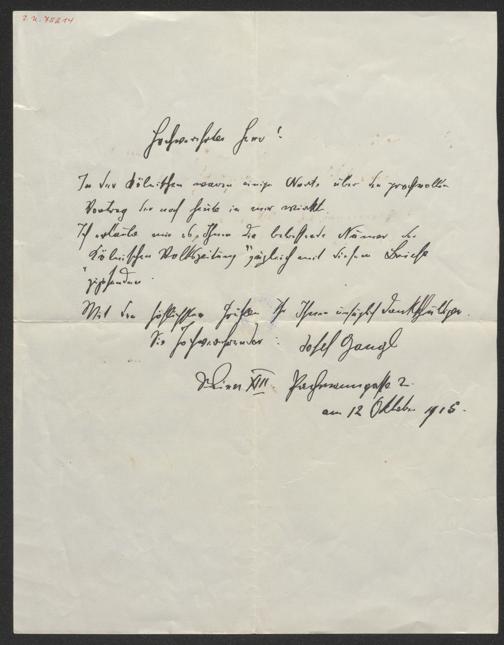 I. N. 75814
Hochverehrter Herr!
In der Kölnischen waren einige Worte über den prachtvollen
Vortrag der noch heute in mir wirkt
Ich erlaube mir es, Ihnen die betreffende Numer der
Kölnischen Volkszeitung" zugleich mit diesem Briefe
zuzusenden
Mit den höflichsten Grüßen Ihr Ihnen
Sie hochverehrender: Josef Gangl
Wien XIII
am 12 Oktober 1915.